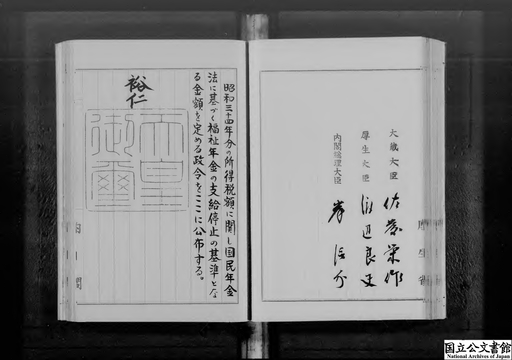 大蔵大臣 佐藤栄作
厚生大臣 渡辺良夫
内閣総理大臣 岸信介
昭和三十四年分の所得税額に関し国民年金
法に基づく福祉年金の支給停止の基準とな
る金額を定める政令をここに公布する。
裕仁
天皇
御璽
内閣
厚生省
国立公文書館
National Archives of Japan